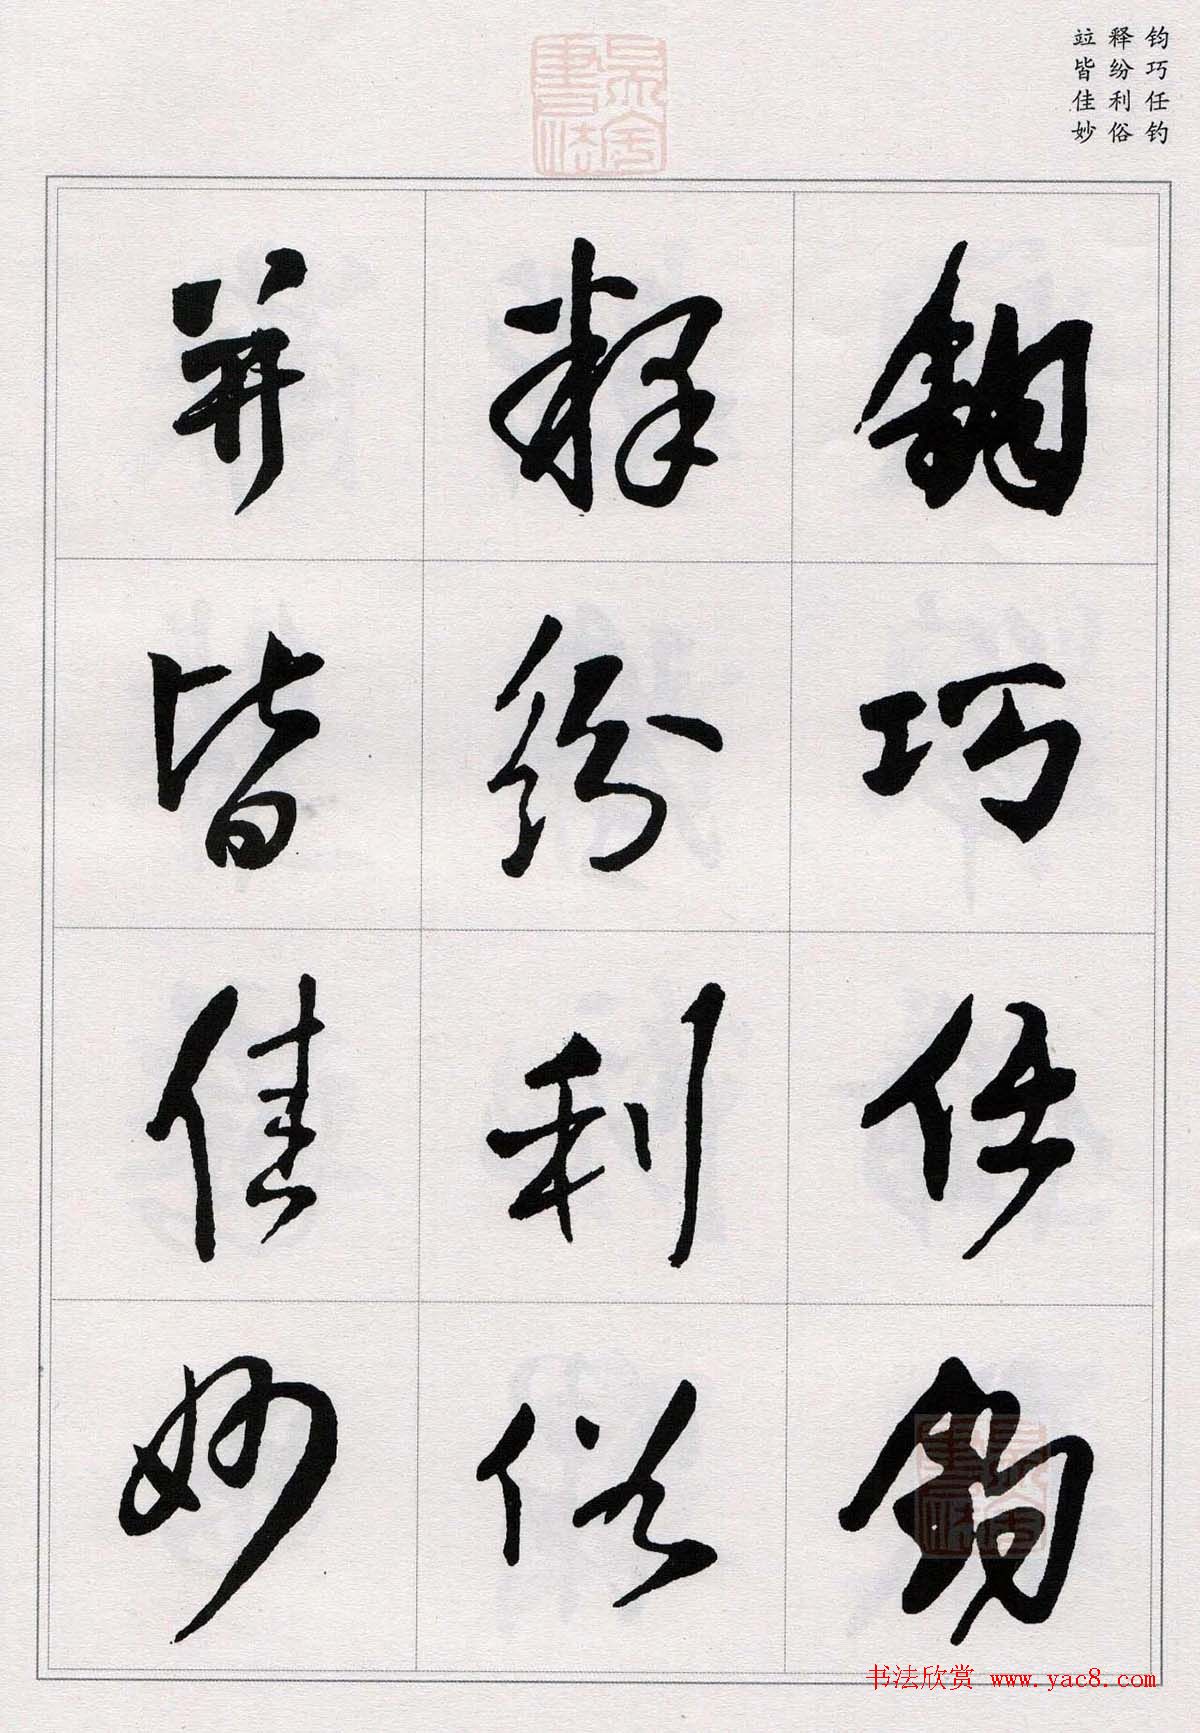 钧巧任钓
释纷利俗
竝皆佳妙
鈞巧任釣
釋紛利俗
並皆佳妙
书法欣赏 www.yac8.com